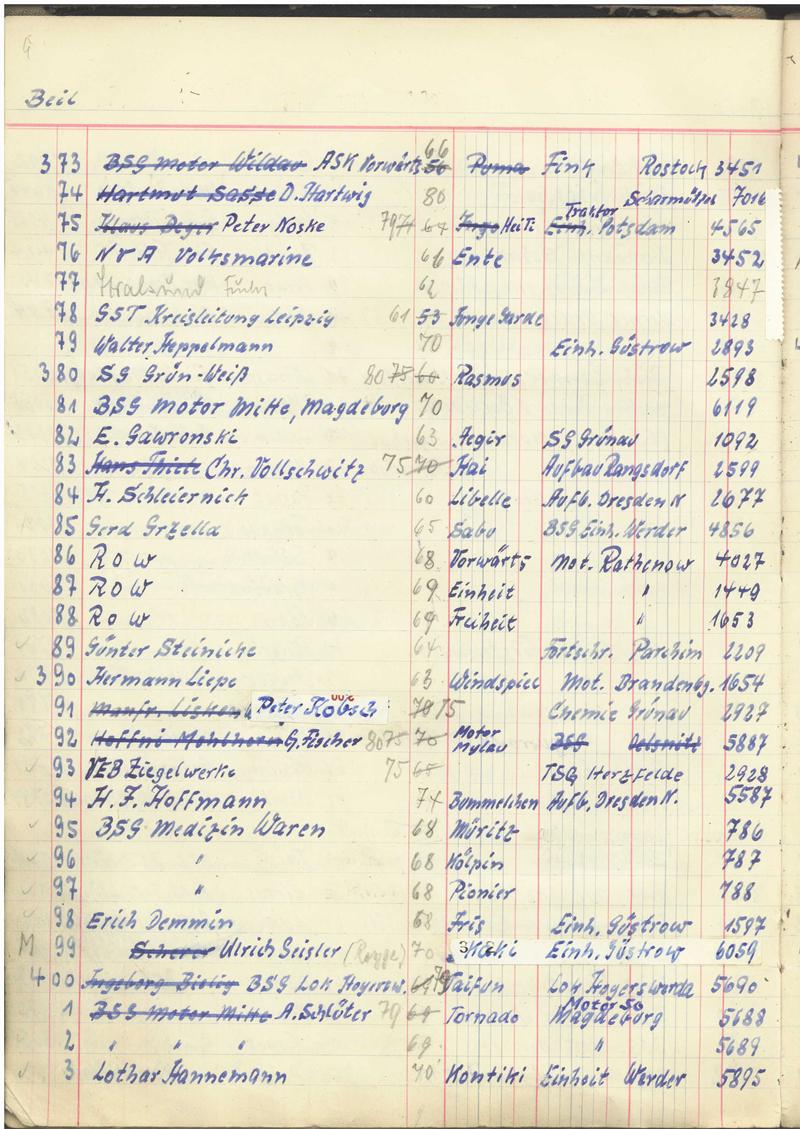 Beil
3 73 BSG Motor Wildau ASK Vorwärts 66 56 Puma Fink Rostock 3451
74 Hartmut Sasse D. Hartwig 80 Scharmützel 7016
75 Klaus Beyer Peter Noske 79 71 64 Ingo HeiTi Einh. Traktor Potsdam 4565
76 NVA Volksmarine 66 Ente 3452
77 Stralsund 62 3847
78 GST Kreisleitung Leipzig 61 53 Junge Garde 3428
79 Walter Heppelmann 70 Einh. Güstrow 2893
3 80 SG Grün-Weiß 80 75 60 Rasmus 2598
81 BSG Motor Mitte, Magdeburg 70 6119
82 E. Gawronski 63 Aegir SG Grünau 1092
83 Hans Thiele Chr. Vollschwitz 75 70 Hai Aufbau Rangsdorf 2599
84 H. Schleiernick 60 Libelle Aufb. Dresden N 2677
85 Gerd Grzella 65 Sabu BSG Einh. Werder 4856
86 R o w 68 Vorwärts Mot. Rathenow 4027
87 R o w 69 Einheit " 1449
88 R o w 69 Freiheit " 1653
89 Günter Steinicke 64 Fortschr. Parchim 2209
3 90 Hermann Liepe 63 Windspiel Mot. Brandenbg. 1654
91 Manfr. Liskow Peter Kobsch 70 75 Chemie Grünau 2927
92 Steffni Mehlhorn G. Fischer 80 75 70 Motor Mylau BSG Oelsnitz 5887
93 VEB Ziegelwerke 75 65 TSG Herzfelde 2928
94 H. F. Hoffmann 74 Bummelchen Aufb. Dresden N. 5587
95 BSG Medizin Waren 68 Müritz 786
96 " 68 Kölpin 787
97 " 68 Pionier 788
98 Erich Demmin 68 Iris Einh. Güstrow 1597
M 99 Scherer Ulrich Geisler 70 Einh. Güstrow 6059
4 00 Ingeborg Bielig BSG Lok Hoyersw. 69 79 Taifun Lok Hoyerswerda 5690
1 BSG Motor Mitte A. Schlüter 79 69 Tornado Motor So Magdeburg 5688
2 " " " 69 " 5689
3 Lothar Hannemann 70 Kontiki Einheit Werder 5895